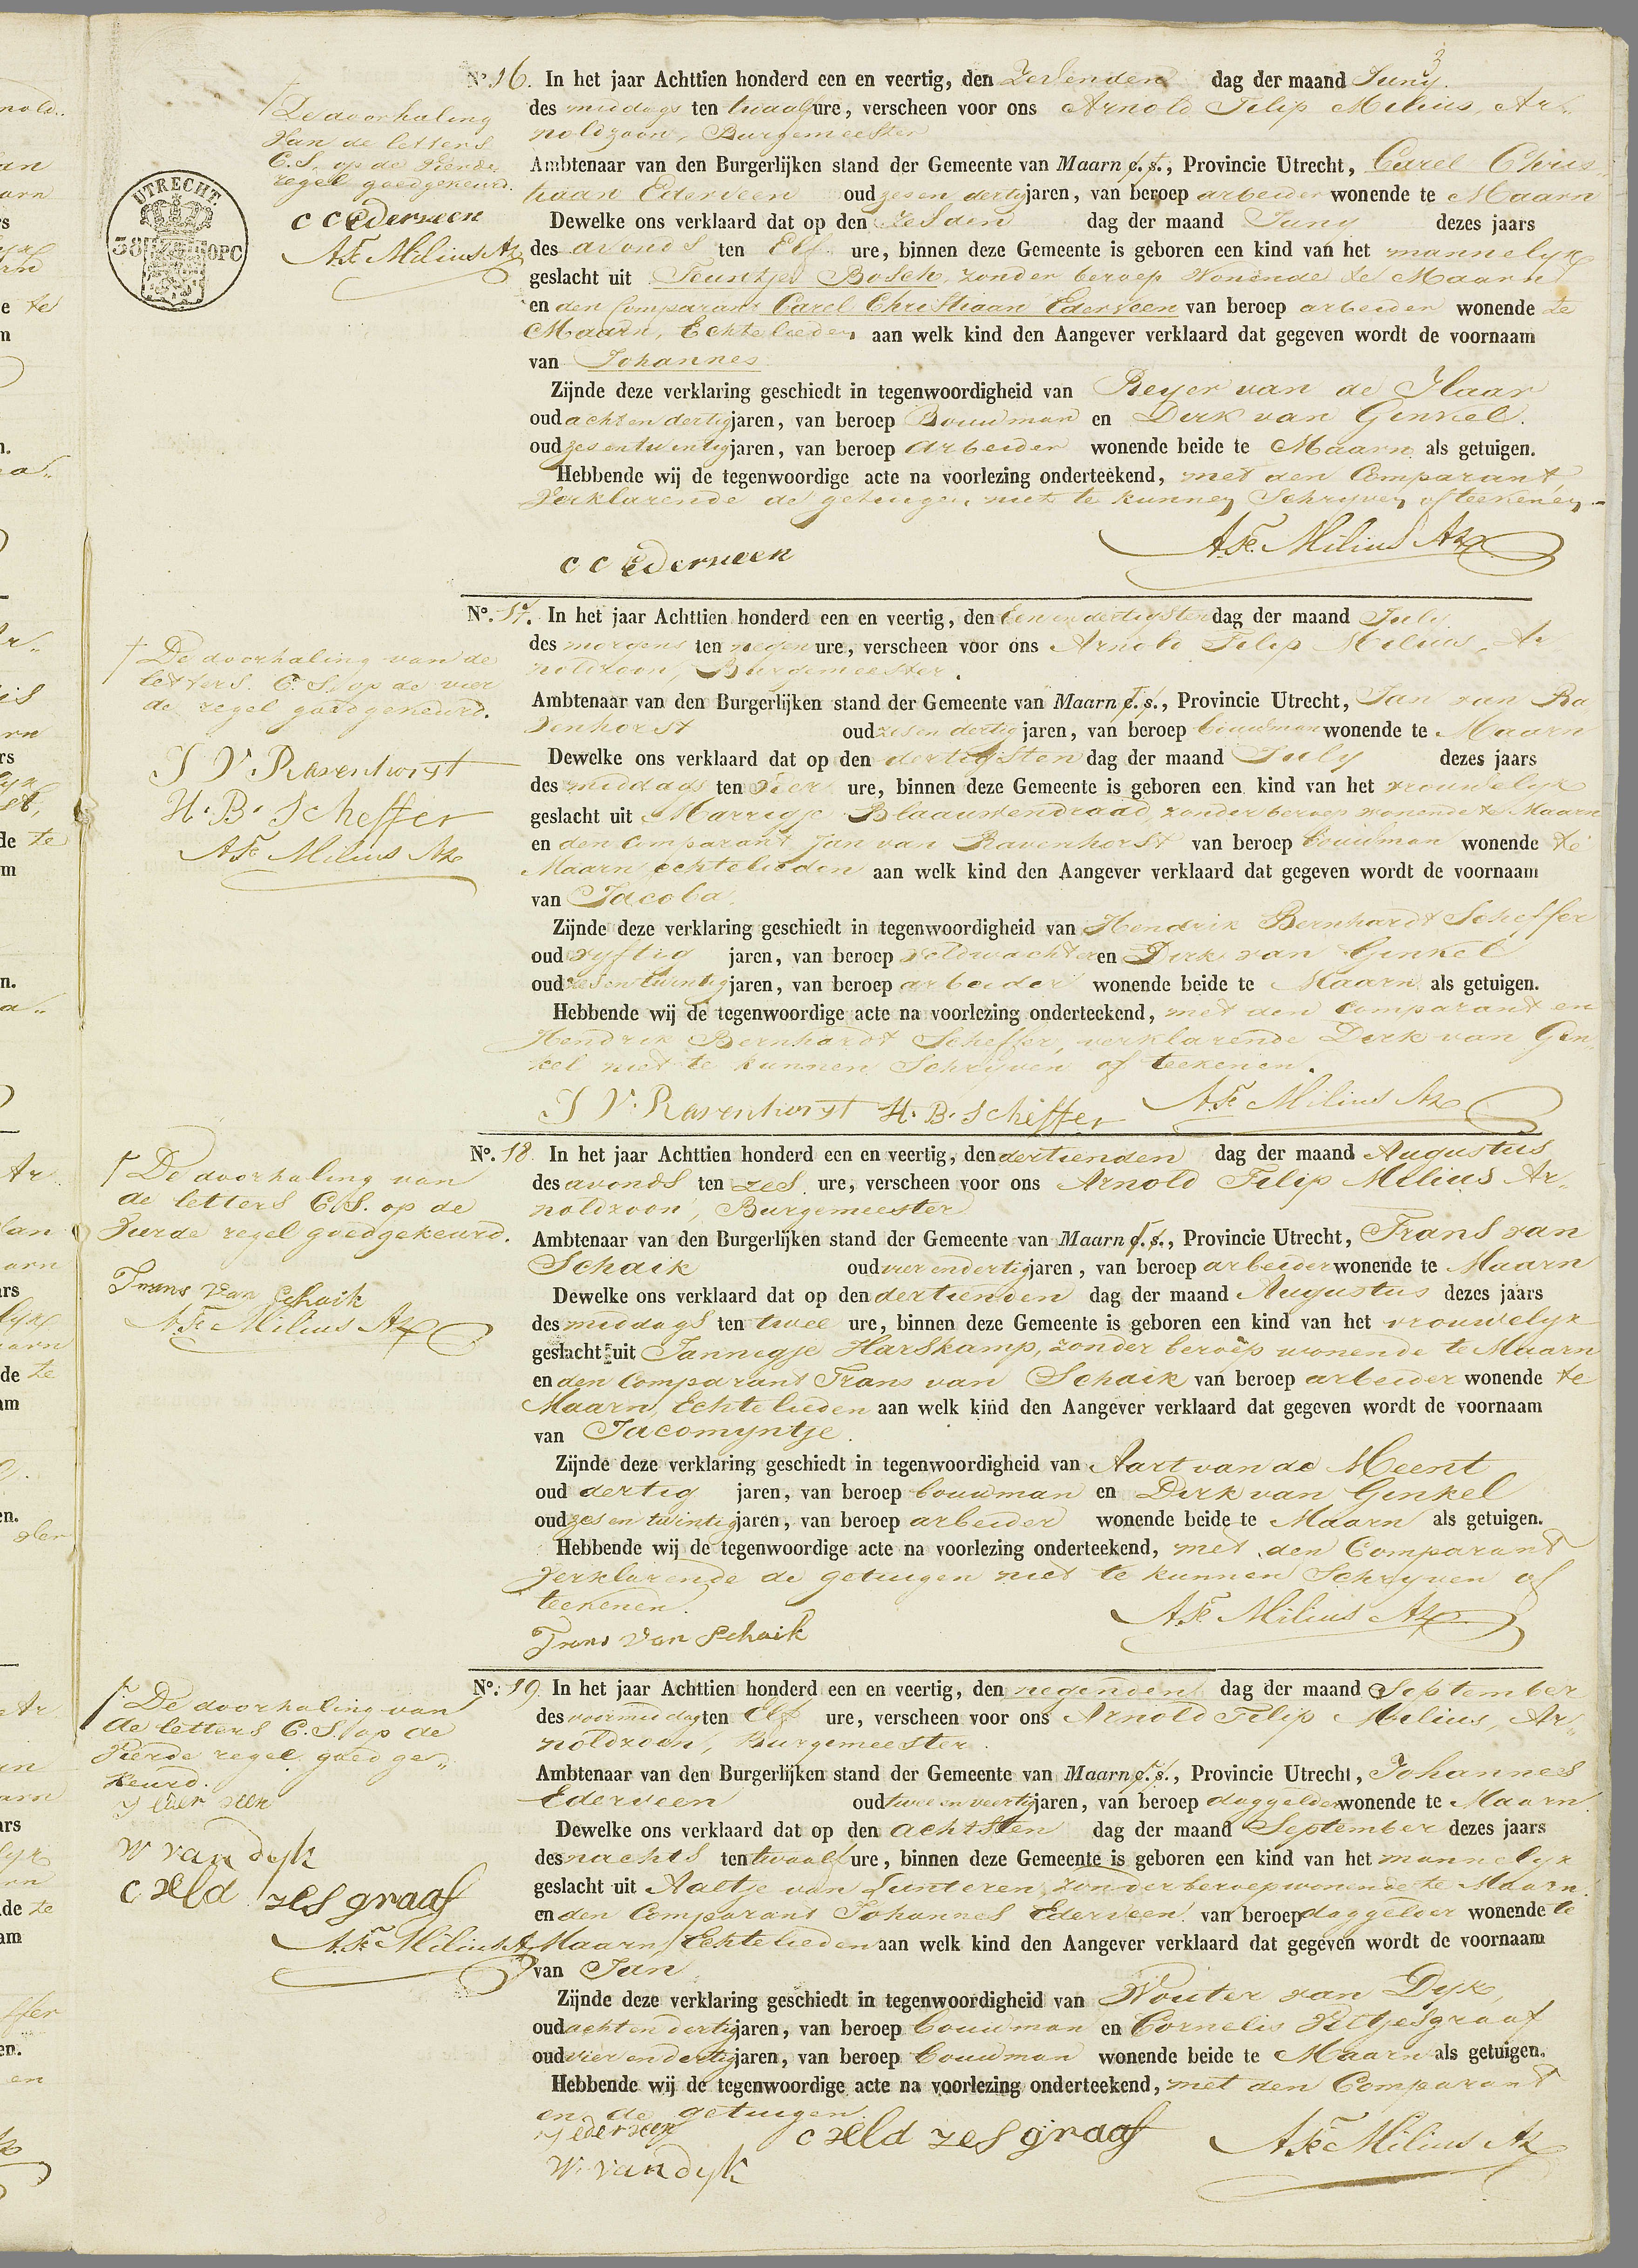 3
UTRECHT.
38 OPC
De doorhaling
Van de letters
C. S. op de vierde
regel goedgekeurd.
C C Ederveen
A. Fc. Milius Az
No. 16. In het jaar Achttien honderd een en veertig, den Zevenden dag der maand Juny.
des middags ten twaalf ure, verscheen voor ons Arnold Filip Milius, Ar-
noldzoon, Burgemeester
Ambtenaar van den Burgerlijken stand der Gemeente van Maarn c.s., Provincie Utrecht, Carel Chris-
tiaan Ederveen oud zes en dertig jaren, van beroep arbeider wonende te Maarn
Dewelke ons verklaard dat op den zesden dag der maand Juny dezes jaars
des avonds ten Elf ure, binnen deze Gemeente is geboren een kind van het mannelyk
geslacht uit Teuntje Bosch, zonder beroep Wonende te Maarn
en den Comparant Carel Christiaan Ederveen van beroep arbeider wonende te
Maarn, Echtelieden, aan welk kind den Aangever verklaard dat gegeven wordt de voornaam
van Johannes
Zijnde deze verklaring geschiedt in tegenwoordigheid van Reyer van de Haar
oud acht en dertig jaren, van beroep Bouwman en Dirk van Ginkel.
oud zes en twintig jaren, van beroep Arbeider wonende beide te Maarn als getuigen.
Hebbende wij de tegenwoordige acte na voorlezing onderteekend, met den Comparant
Verklarende de getuigen niet te kunnen Schryven of teekenen.
C C Ederveen
A. Fc. Milius Az
De doorhaling van de
letters C. S. op de vier
de regel goedgekeurd.
J V. Ravenhorst
H. B. Scheffer
A. Fc Milius Az
No. 17. In het jaar Achttien honderd een en veertig, den Een en dertigsten dag der maand July
des morgens ten negen ure, verscheen voor ons Arnold Filip Milius, Ar
noldzoon, Burgemeester.
Ambtenaar van den Burgerlijken stand der Gemeente van Maarn c.s., Provincie Utrecht, Jan van Ra
venhorst oud zes en dertig jaren, van beroep bouwman wonende te Maarn
Dewelke ons verklaard dat op den dertigsten dag der maand July dezes jaars
des middags ten vier ure, binnen deze Gemeente is geboren een kind van het vrouwelyk
geslacht uit Marrigje Blaauwendraad, zonder beroep wonende te Maarn
en den Comparant Jan van Ravenhorst van beroep bouwman wonende te
Maarn echtelieden aan welk kind den Aangever verklaard dat gegeven wordt de voornaam
van Jacoba.
Zijnde deze verklaring geschiedt in tegenwoordigheid van Hendrik Bernhardt Scheffer
oud vyftig jaren, van beroep veldwachter en Dirk van Ginkel
oud zes en twintig jaren, van beroep arbeider wonende beide te Maarn als getuigen.
Hebbende wij de tegenwoordige acte na voorlezing onderteekend, met den Comparant en
Hendrik Bernhardt Scheffer, verklarende Dirk van Gin
kel niet te kunnen Schryven of teekenen.
J V. Ravenhorst H. B. Scheffer A. Fc Milius Az
De doorhaling van
de letters C. S. op de
Vierde regel goedgekeurd.
Frans van Schaik
A. Fc Milius Az
No. 18. In het jaar Achttien honderd een en veertig, den dertienden dag der maand Augustus
des avonds ten zes ure, verscheen voor ons Arnold Filip Milius Ar-
noldzoon, Burgemeester
Ambtenaar van den Burgerlijken stand der Gemeente van Maarn c.s., Provincie Utrecht, Frans van
Schaik oud vier en dertig jaren, van beroep arbeider wonende te Maarn
Dewelke ons verklaard dat op den dertienden dag der maand Augustus dezes jaars
des middags ten twee ure, binnen deze Gemeente is geboren een kind van het vrouwelyk
geslacht uit Jannegje Harskamp, zonder beroep wonende te Maarn
en den Comparant Frans van Schaik van beroep arbeider wonende te
Maarn, Echtelieden aan welk kind den Aangever verklaard dat gegeven wordt de voornaam
van Jacomyntje.
Zijnde deze verklaring geschiedt in tegenwoordigheid van Aart van de Meent
oud dertig jaren, van beroep bouwman en Dirk van Ginkel
oud zes en twintig jaren, van beroep arbeider wonende beide te Maarn als getuigen.
Hebbende wij de tegenwoordige acte na voorlezing onderteekend, met den Comparant
Verklarende de getuigen niet te kunnen Schryven of
teekenen.
Frans van Schaik
A. Fc Milius Az
De doorhaling van
de letters C. S. op de
Vierde regel goed ge-
keurd.
J Eder veen
W van dyk
C Zeldzesgraaf
A. Fc Milius A
No. 19. In het jaar Achttien honderd een en veertig, den negenden dag der maand September
des voormiddag ten Elf ure, verscheen voor ons Arnold Filip Milius, Ar-
noldzoon, Burgemeester.
Ambtenaar van den Burgerlijken stand der Gemeente van Maarn c.s., Provincie Utrecht, Johannes
Ederveen oud twee en veertig jaren, van beroep daggelder wonende te Maarn.
Dewelke ons verklaard dat op den achtsten dag der maand September dezes jaars
des nachts ten twaalf ure, binnen deze Gemeente is geboren een kind van het mannelyk
geslacht uit Aaltje van Lunteren, zonder beroep wonende te Maarn
en den Comparant Johannes Ederveen van beroep daggelder wonende te
Maarn, Echtelieden aan welk kind den Aangever verklaard dat gegeven wordt de voornaam
van Jan
Zijnde deze verklaring geschiedt in tegenwoordigheid van Wouter van Dyk,
oud acht en dertig jaren, van beroep bouwman en Cornelis
oud vier en dertig jaren, van beroep bouwman wonende beide te Maarn als getuigen.
Hebbende wij de tegenwoordige acte na voorlezing onderteekend, met den Comparant
en de getuigen.
J ederveen
C Zeldzesgraaf
A. Fc Milius Az
W. van dyk